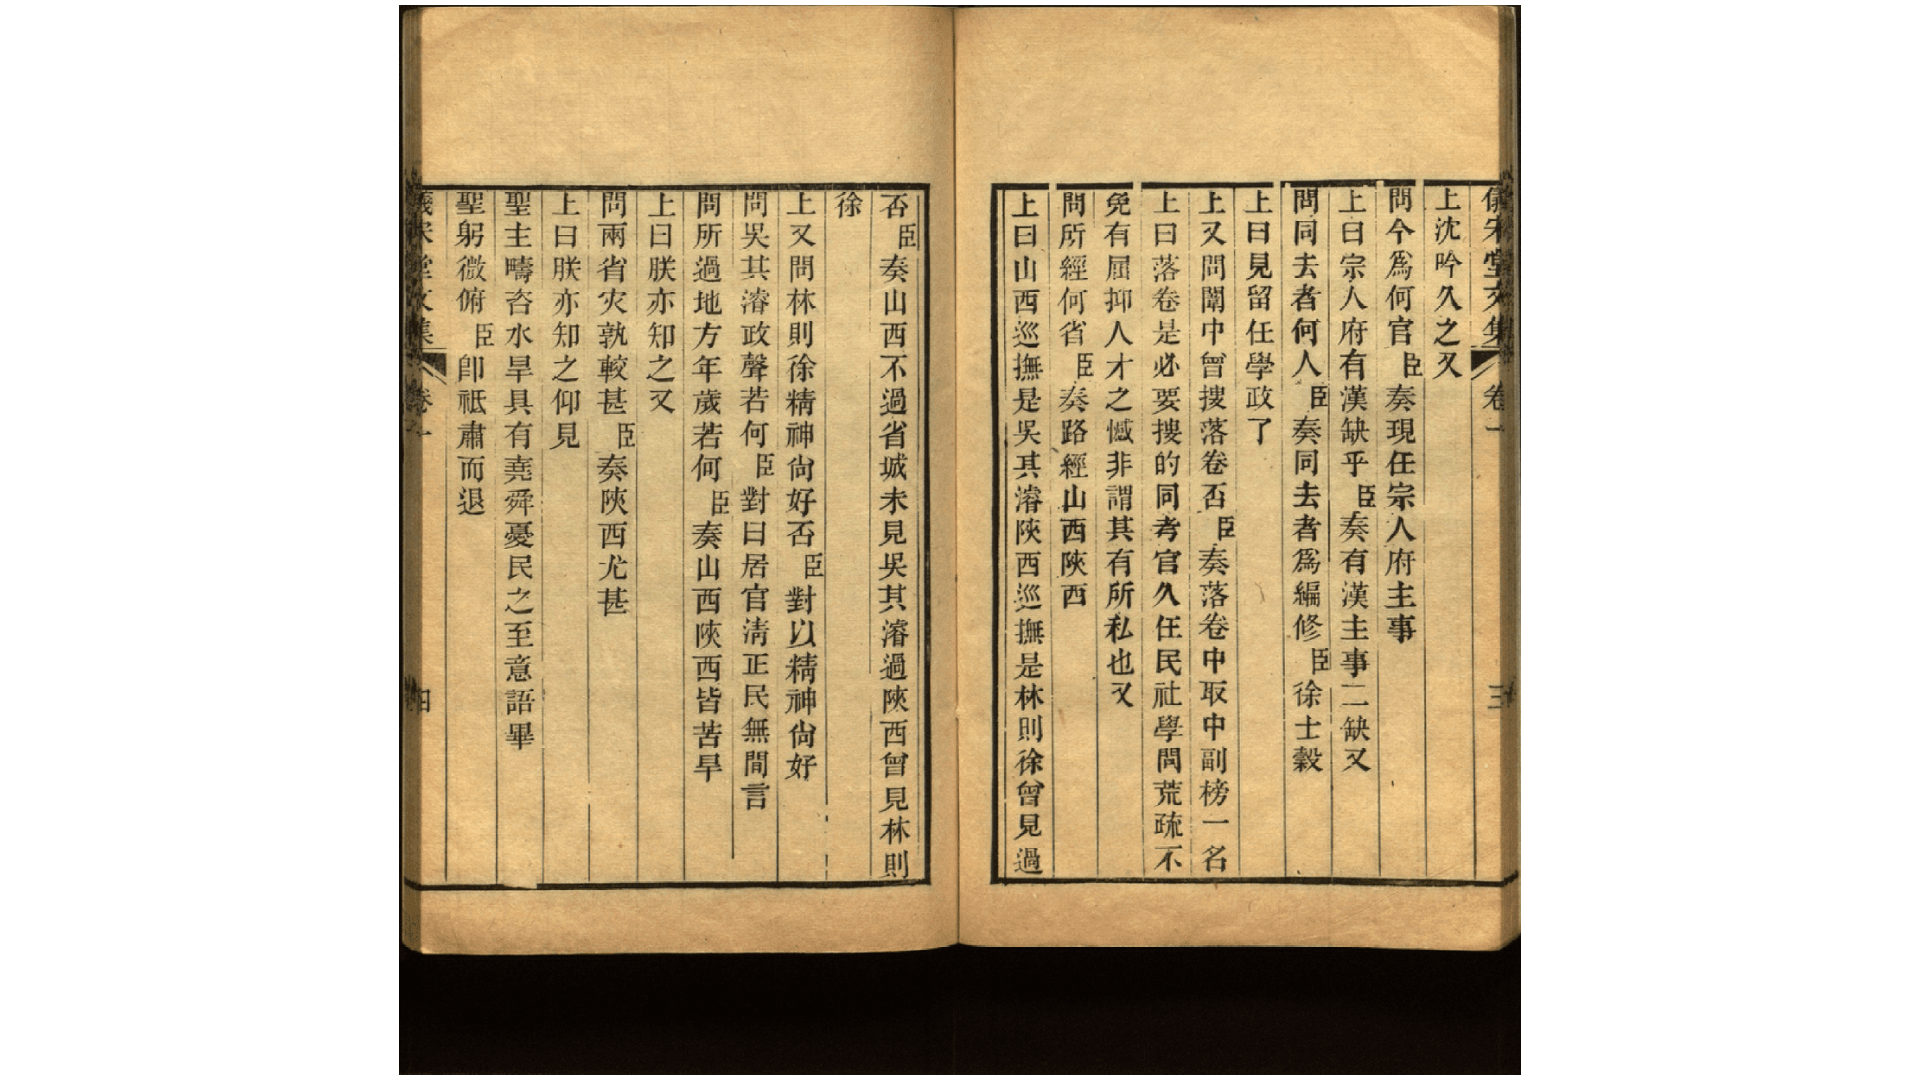 儀宋堂文集 卷一 三
上沈吟久之又
問今爲何官臣奏現任宗人府主事
上曰宗人府有漢缺乎臣奏有漢主事二缺又
問同去者何人臣奏同去者爲編修臣徐士穀
上曰見留任學政了
上又問闈中曾搜落卷否臣奏落卷中取中副榜一名
上曰落卷是必要搜的同考官久任民社學問荒疏不
免有屈抑人才之憾非謂其有所私也又
問所經何省臣奏路經山西陝西
上曰山西巡撫是吳其濬陝西巡撫是林則徐曾見過
否臣奏山西不過省城未見吳其濬過陝西曾見林則
徐
上又問林則徐精神尙好否臣對以精神尙好
問吳其濬政聲若何臣對曰居官淸正民無閒言
問所過地方年歲若何臣奏山西陝西皆苦旱
上曰朕亦知之又
問兩省灾孰較甚臣奏陝西尤甚
上曰朕亦知之仰見
聖主疇咨水旱具有堯舜憂民之至意語畢
聖躬微俯臣卽祗肅而退
儀宋堂文集 卷一 四